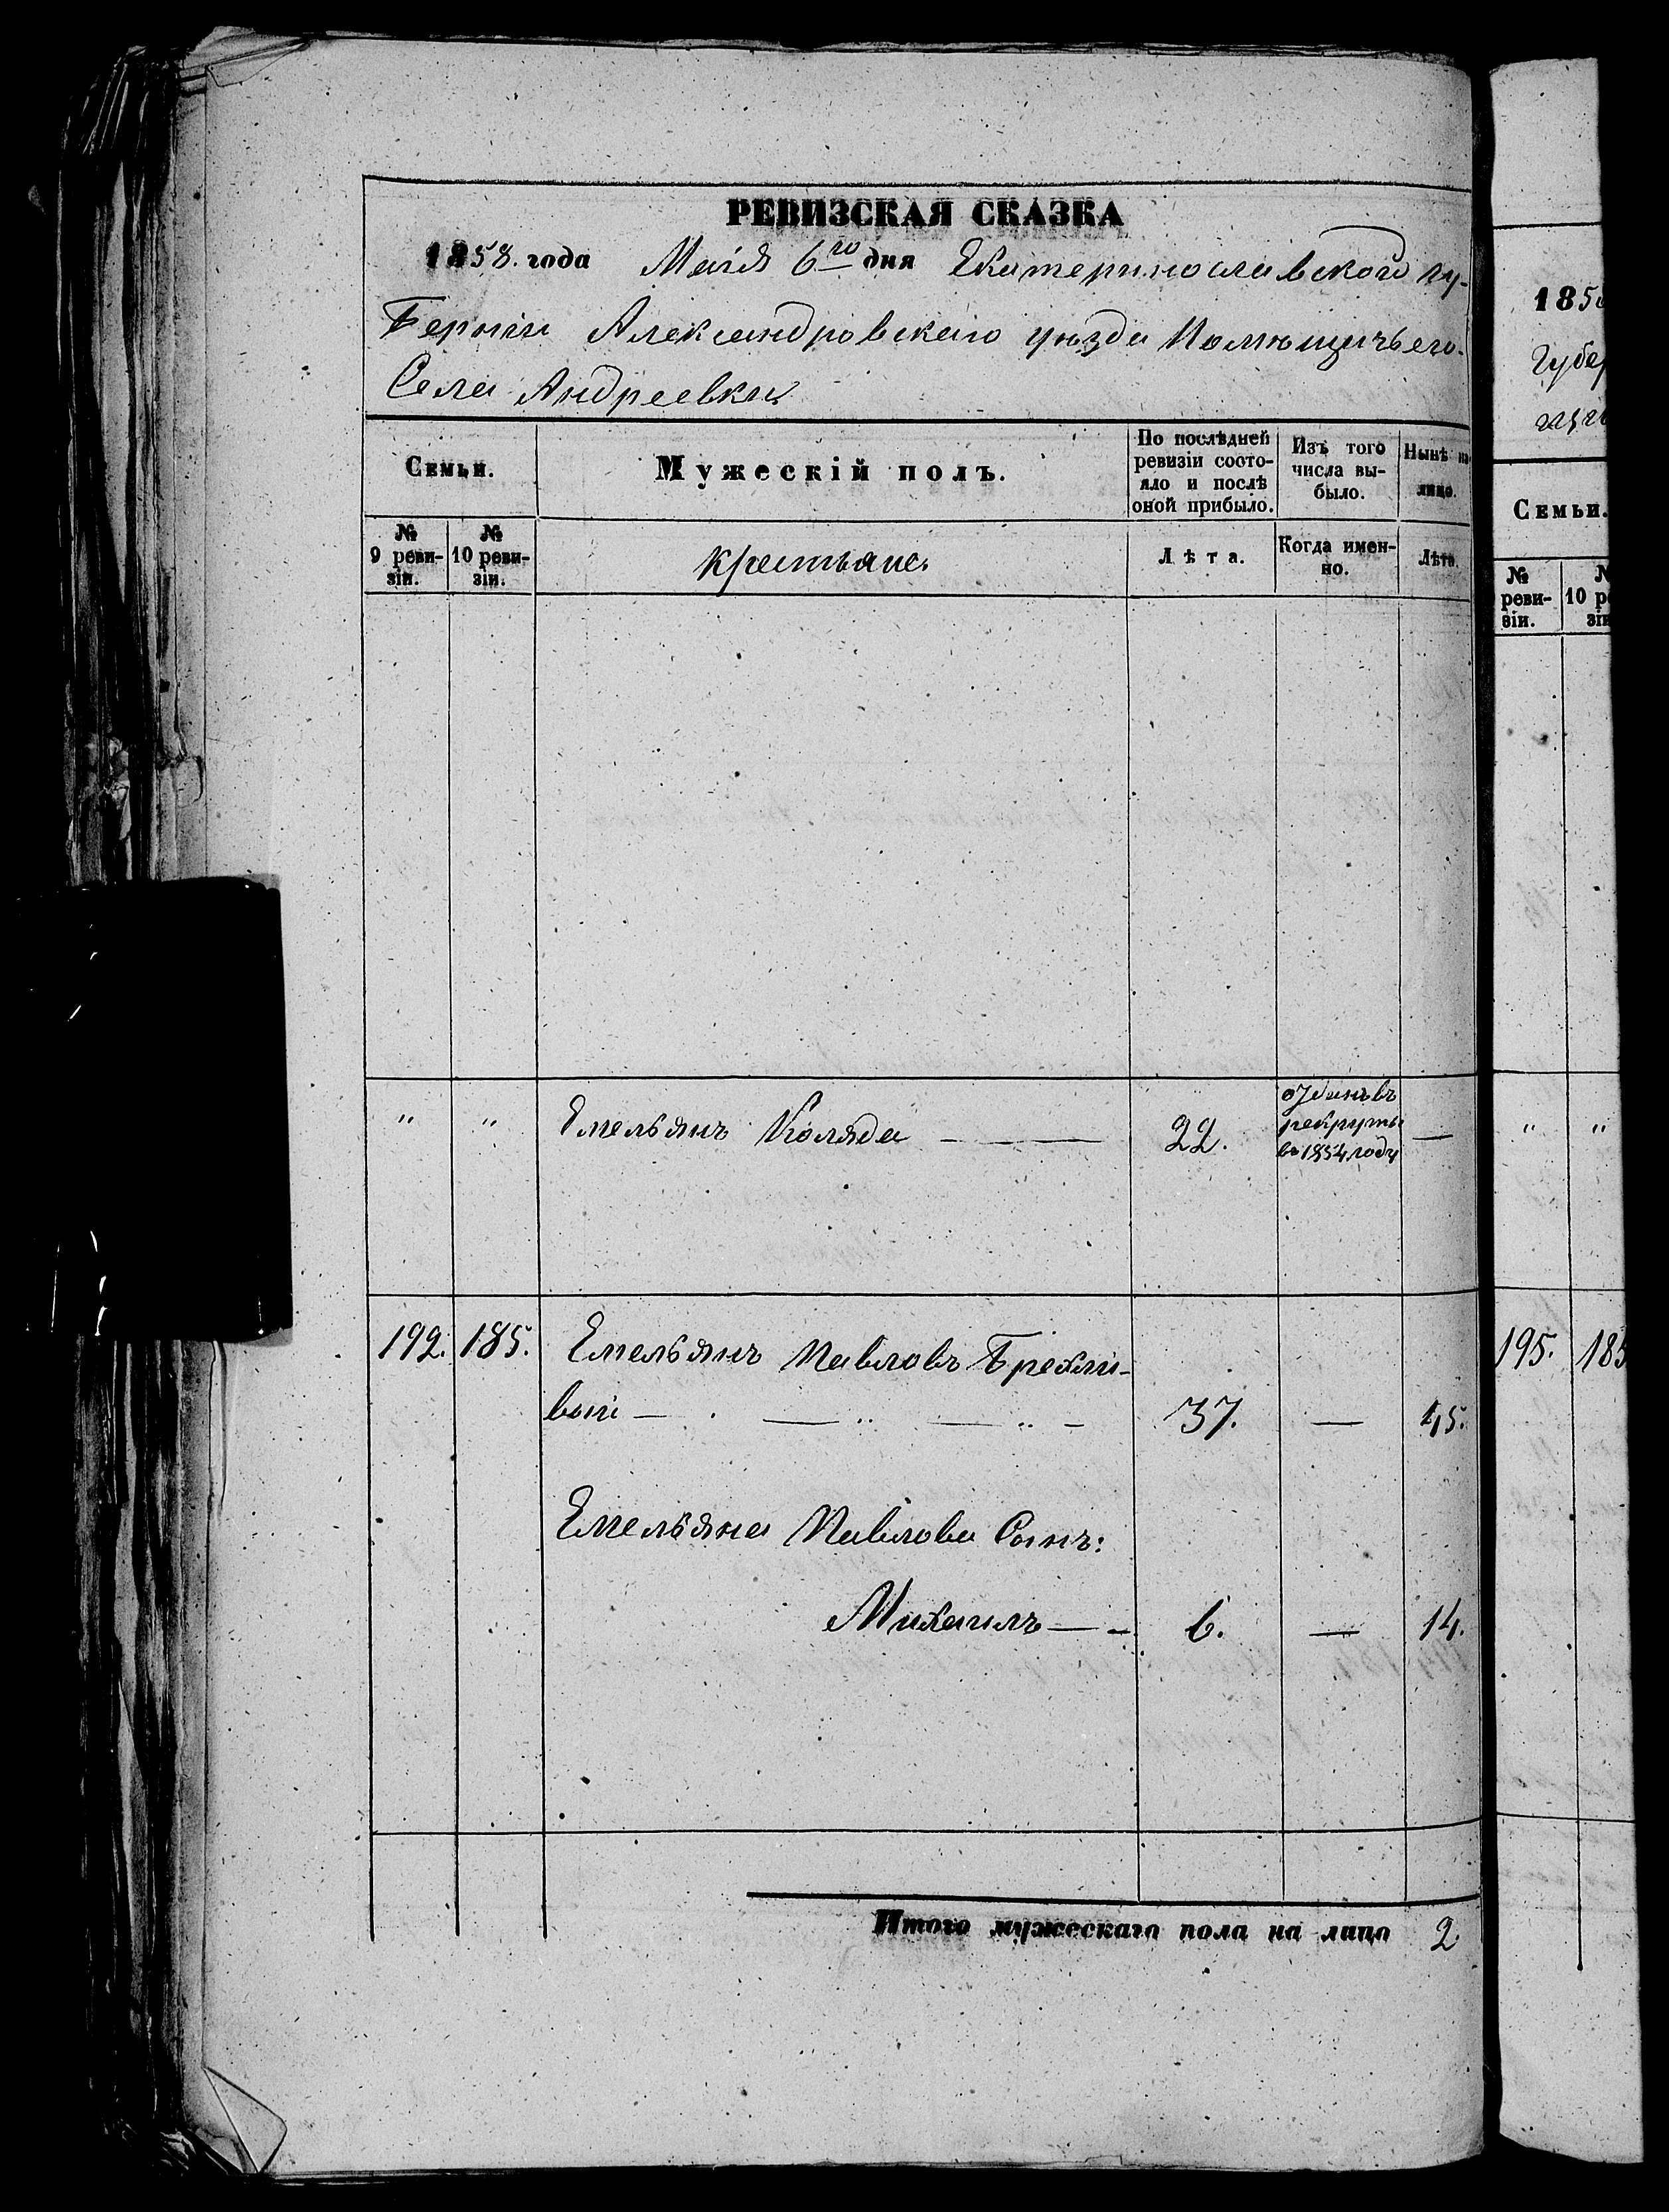 РЕВИЗСКАЯ СКАЗКА
1858. года Маія 6го дня Екатеринославского гу-
берніи Александровскаго уѣзда Помѣщичьего
Села Андреевки
Семьи.
Мужескій полъ.
По послѣдней
ревизіи состо-
яло и послѣ
оной прибыло.
Изъ того
числа вы-
было.
Нынѣ на
лицо.
№
9 реви-
зіи.
№
10 реви-
зіи.
крестьяне.
Лѣта.
Когда имен-
но.
Лѣта.
" " Емельянъ Коляда — 22. отданъ въ
рекруты
въ 1854 году —
192. 185. Емельянъ Павловъ Брехли-
вый — 37. — 45.
Емельяна Павлова Сынъ:
Михаилъ — 6. — 14.
Итого мужескаго пола на лицо 2
185
Губер
Семьи.
№
реви-
зіи.
10 ре
зіи
" "
195. 18